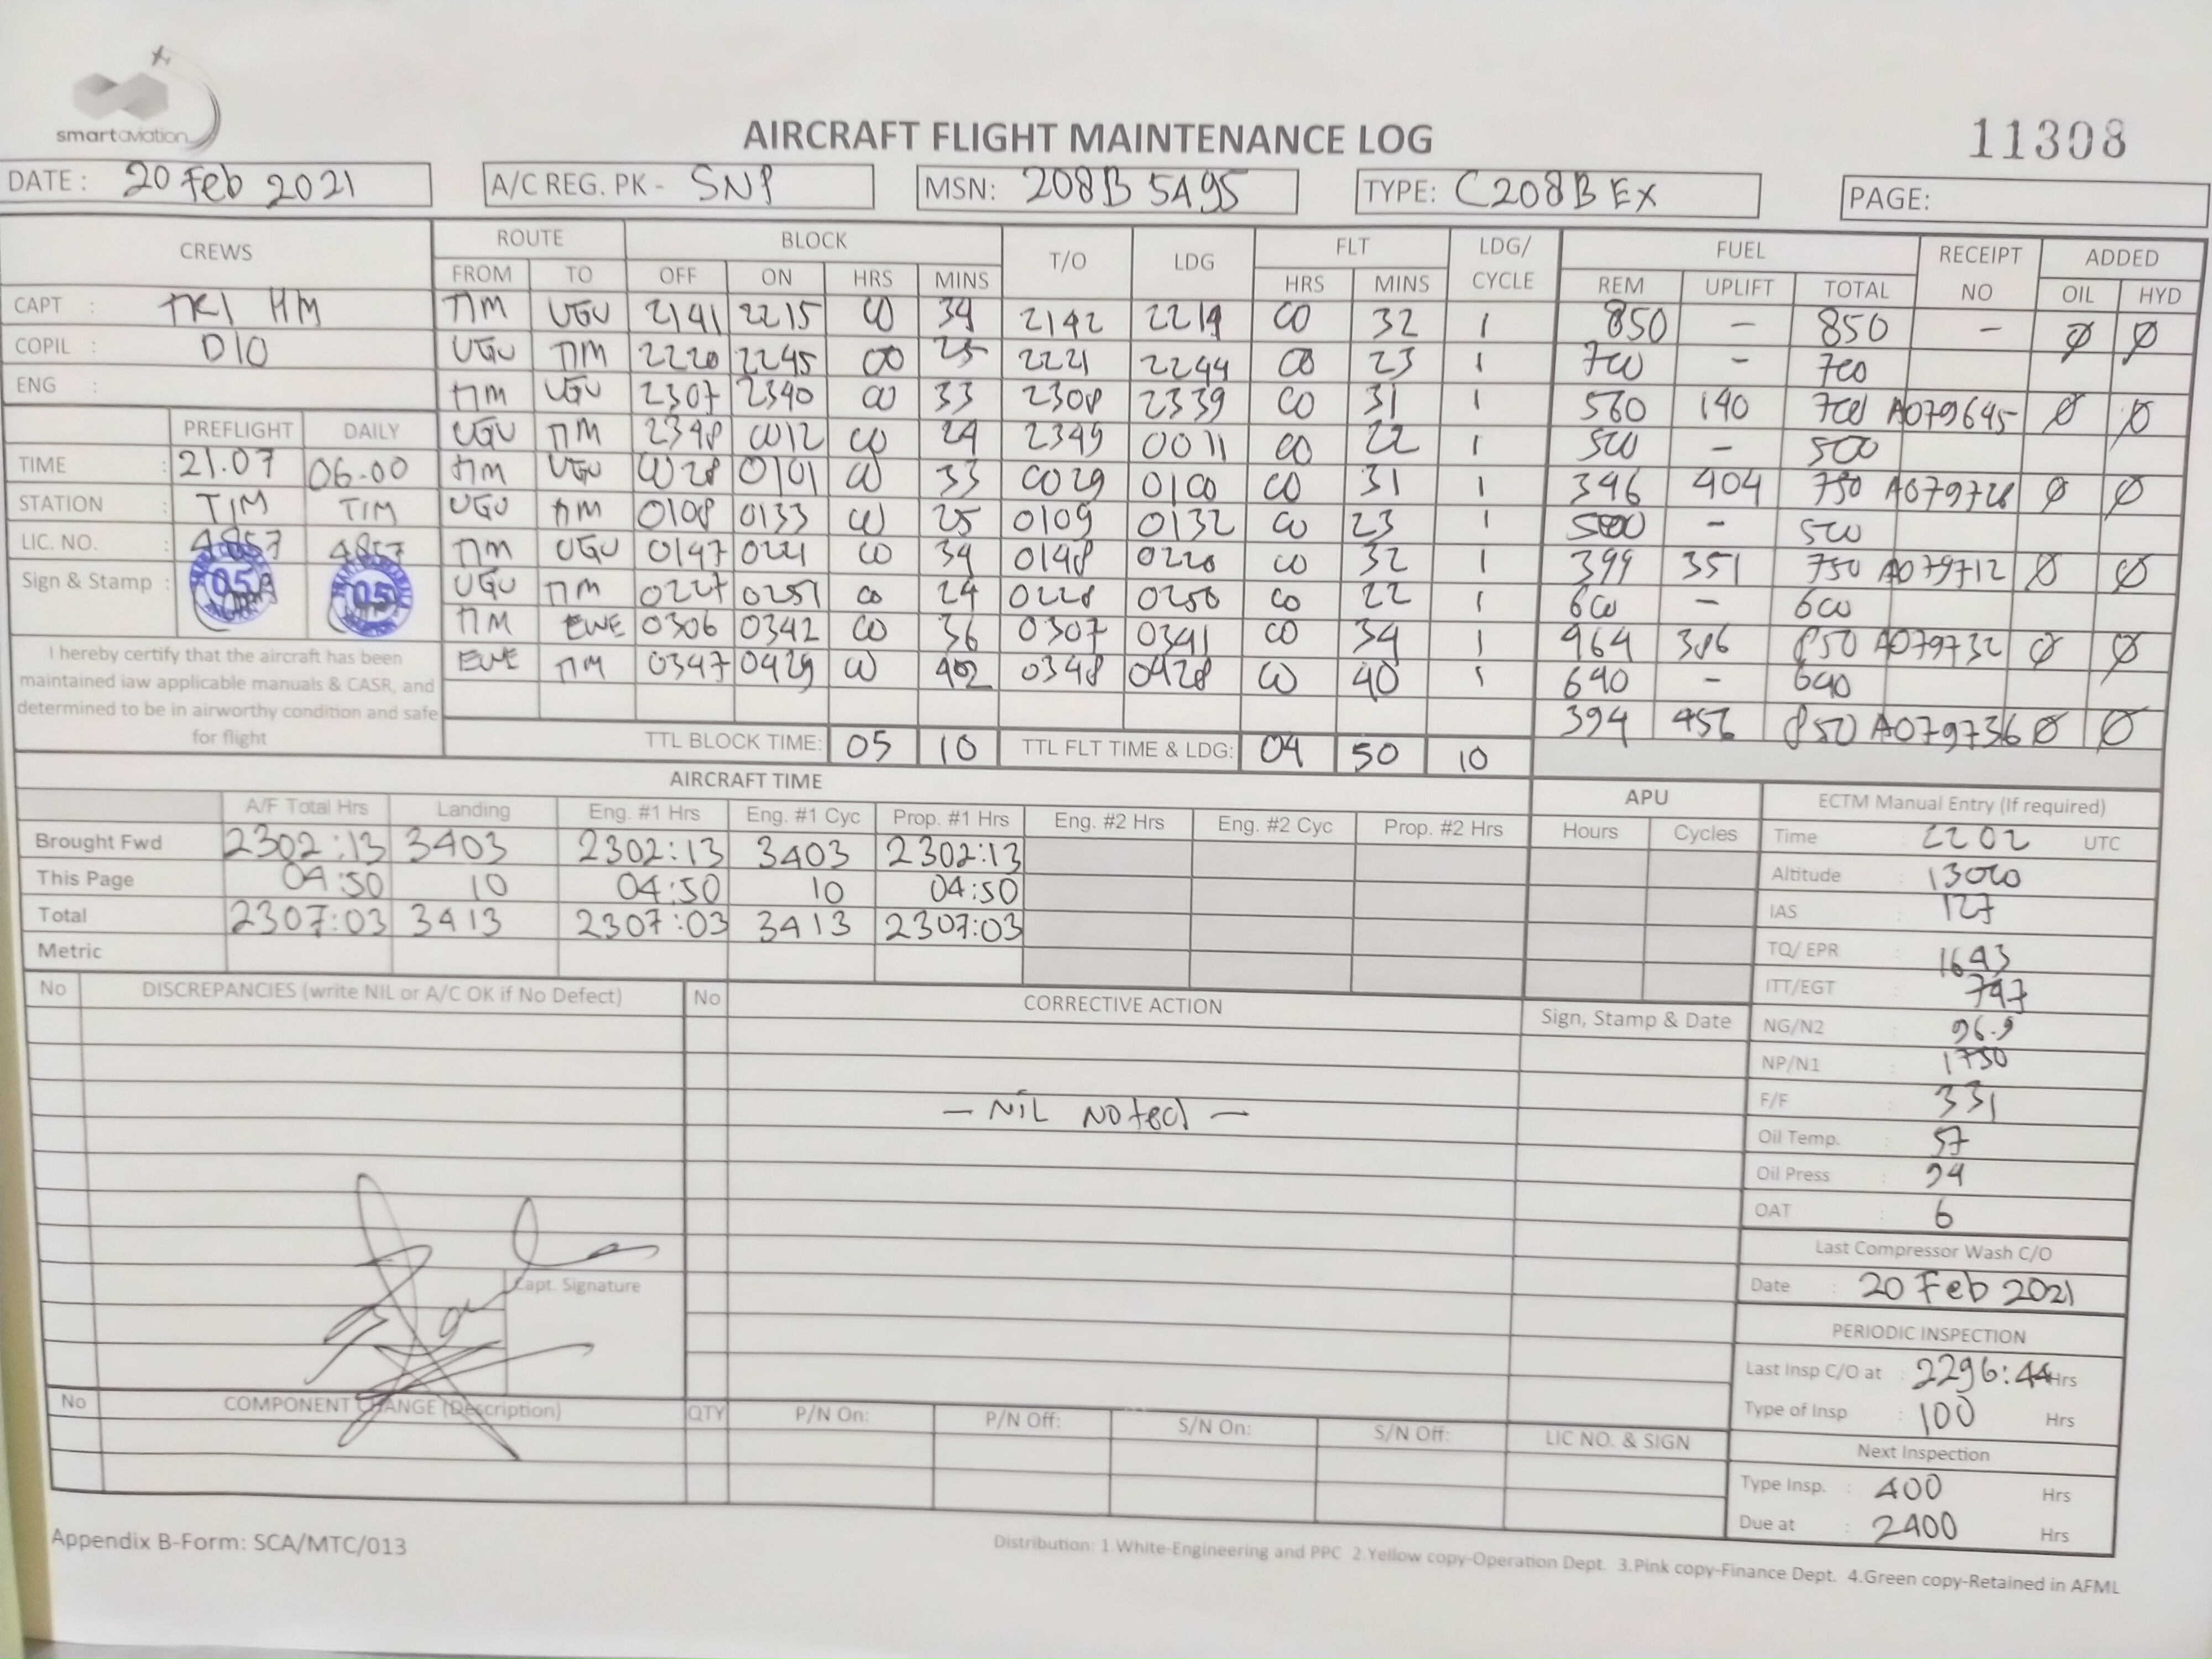 smartaviation
AIRCRAFT FLIGHT MAINTENANCE LOG
11308
DATE : 20 Feb 2021 A/C REG. PK - SNP MSN: 208B 5495 TYPE: C208B EX PAGE:
CREWS ROUTE BLOCK T/O LDG FLT LDG/ CYCLE FUEL RECEIPT NO ADDED
FROM TO OFF ON HRS MINS HRS MINS REM UPLIFT TOTAL OIL HYD
CAPT : TRI HM TIM UGU 2141 2215 00 34 2142 2214 00 32 1 850 - 850 - Ø Ø
COPIL : DIO UGU TIM 2220 2245 00 25 2221 2244 00 23 1 700 - 700
ENG : TIM UGU 2307 2340 00 33 2308 2339 00 31 1 560 140 700 A079645 Ø Ø
PREFLIGHT DAILY UGU TIM 2348 0012 00 24 2349 0011 00 22 1 500 - 500
TIME : 21.07 06.00 TIM UGU 0028 0101 00 33 0029 0100 00 31 1 346 404 750 Ø Ø
STATION : TIM TIM UGU TIM 0108 0133 00 25 0109 0132 00 23 1 500 - 500
LIC. NO. : 4857 4857 TIM UGU 0147 0221 00 34 0148 0220 00 32 1 399 351 750 A079712 Ø Ø
Sign & Stamp : 05 05 UGU TIM 0227 0251 00 24 0228 0250 00 22 1 600 - 600
TIM EWE 0306 0342 00 36 0307 0341 00 34 1 464 386 850 A079732 Ø Ø
EWE TIM 0347 0429 00 42 0348 0428 00 40 1 640 - 640
394 456 850 A079736 Ø Ø
I hereby certify that the aircraft has been
maintained iaw applicable manuals & CASR, and
determined to be in airworthy condition and safe
for flight
TTL BLOCK TIME: 05 10 TTL FLT TIME & LDG: 04 50 10
AIRCRAFT TIME APU ECTM Manual Entry (If required)
A/F Total Hrs Landing Eng. #1 Hrs Eng. #1 Cyc Prop. #1 Hrs Eng. #2 Hrs Eng. #2 Cyc Prop. #2 Hrs Hours Cycles
Brought Fwd 2302:13 3403 2302:13 3403 2302:13
This Page 04:50 10 04:50 10 04:50
Total 2307:03 3413 2307:03 3413 2307:03
Metric
Time : 2202 UTC
Altitude : 13000
IAS : 127
TQ/ EPR : 1643
ITT/EGT : 747
NG/N2 : 96.9
NP/N1 : 1750
F/F : 331
Oil Temp. : 57
Oil Press : 94
OAT : 6
No DISCREPANCIES (write NIL or A/C OK if No Defect) No CORRECTIVE ACTION Sign, Stamp & Date
- NIL Noted -
Capt. Signature
Last Compressor Wash C/O
Date : 20 Feb 2021
PERIODIC INSPECTION
Last Insp C/O at : 2296:44 Hrs
Type of Insp : 100 Hrs
Next Inspection
Type Insp. : 400 Hrs
Due at : 2400 Hrs
No COMPONENT CHANGE (Description) QTY P/N On: P/N Off: S/N On: S/N Off: LIC NO. & SIGN
Appendix B-Form: SCA/MTC/013
Distribution: 1.White-Engineering and PPC 2.Yellow copy-Operation Dept. 3.Pink copy-Finance Dept. 4.Green copy-Retained in AFML